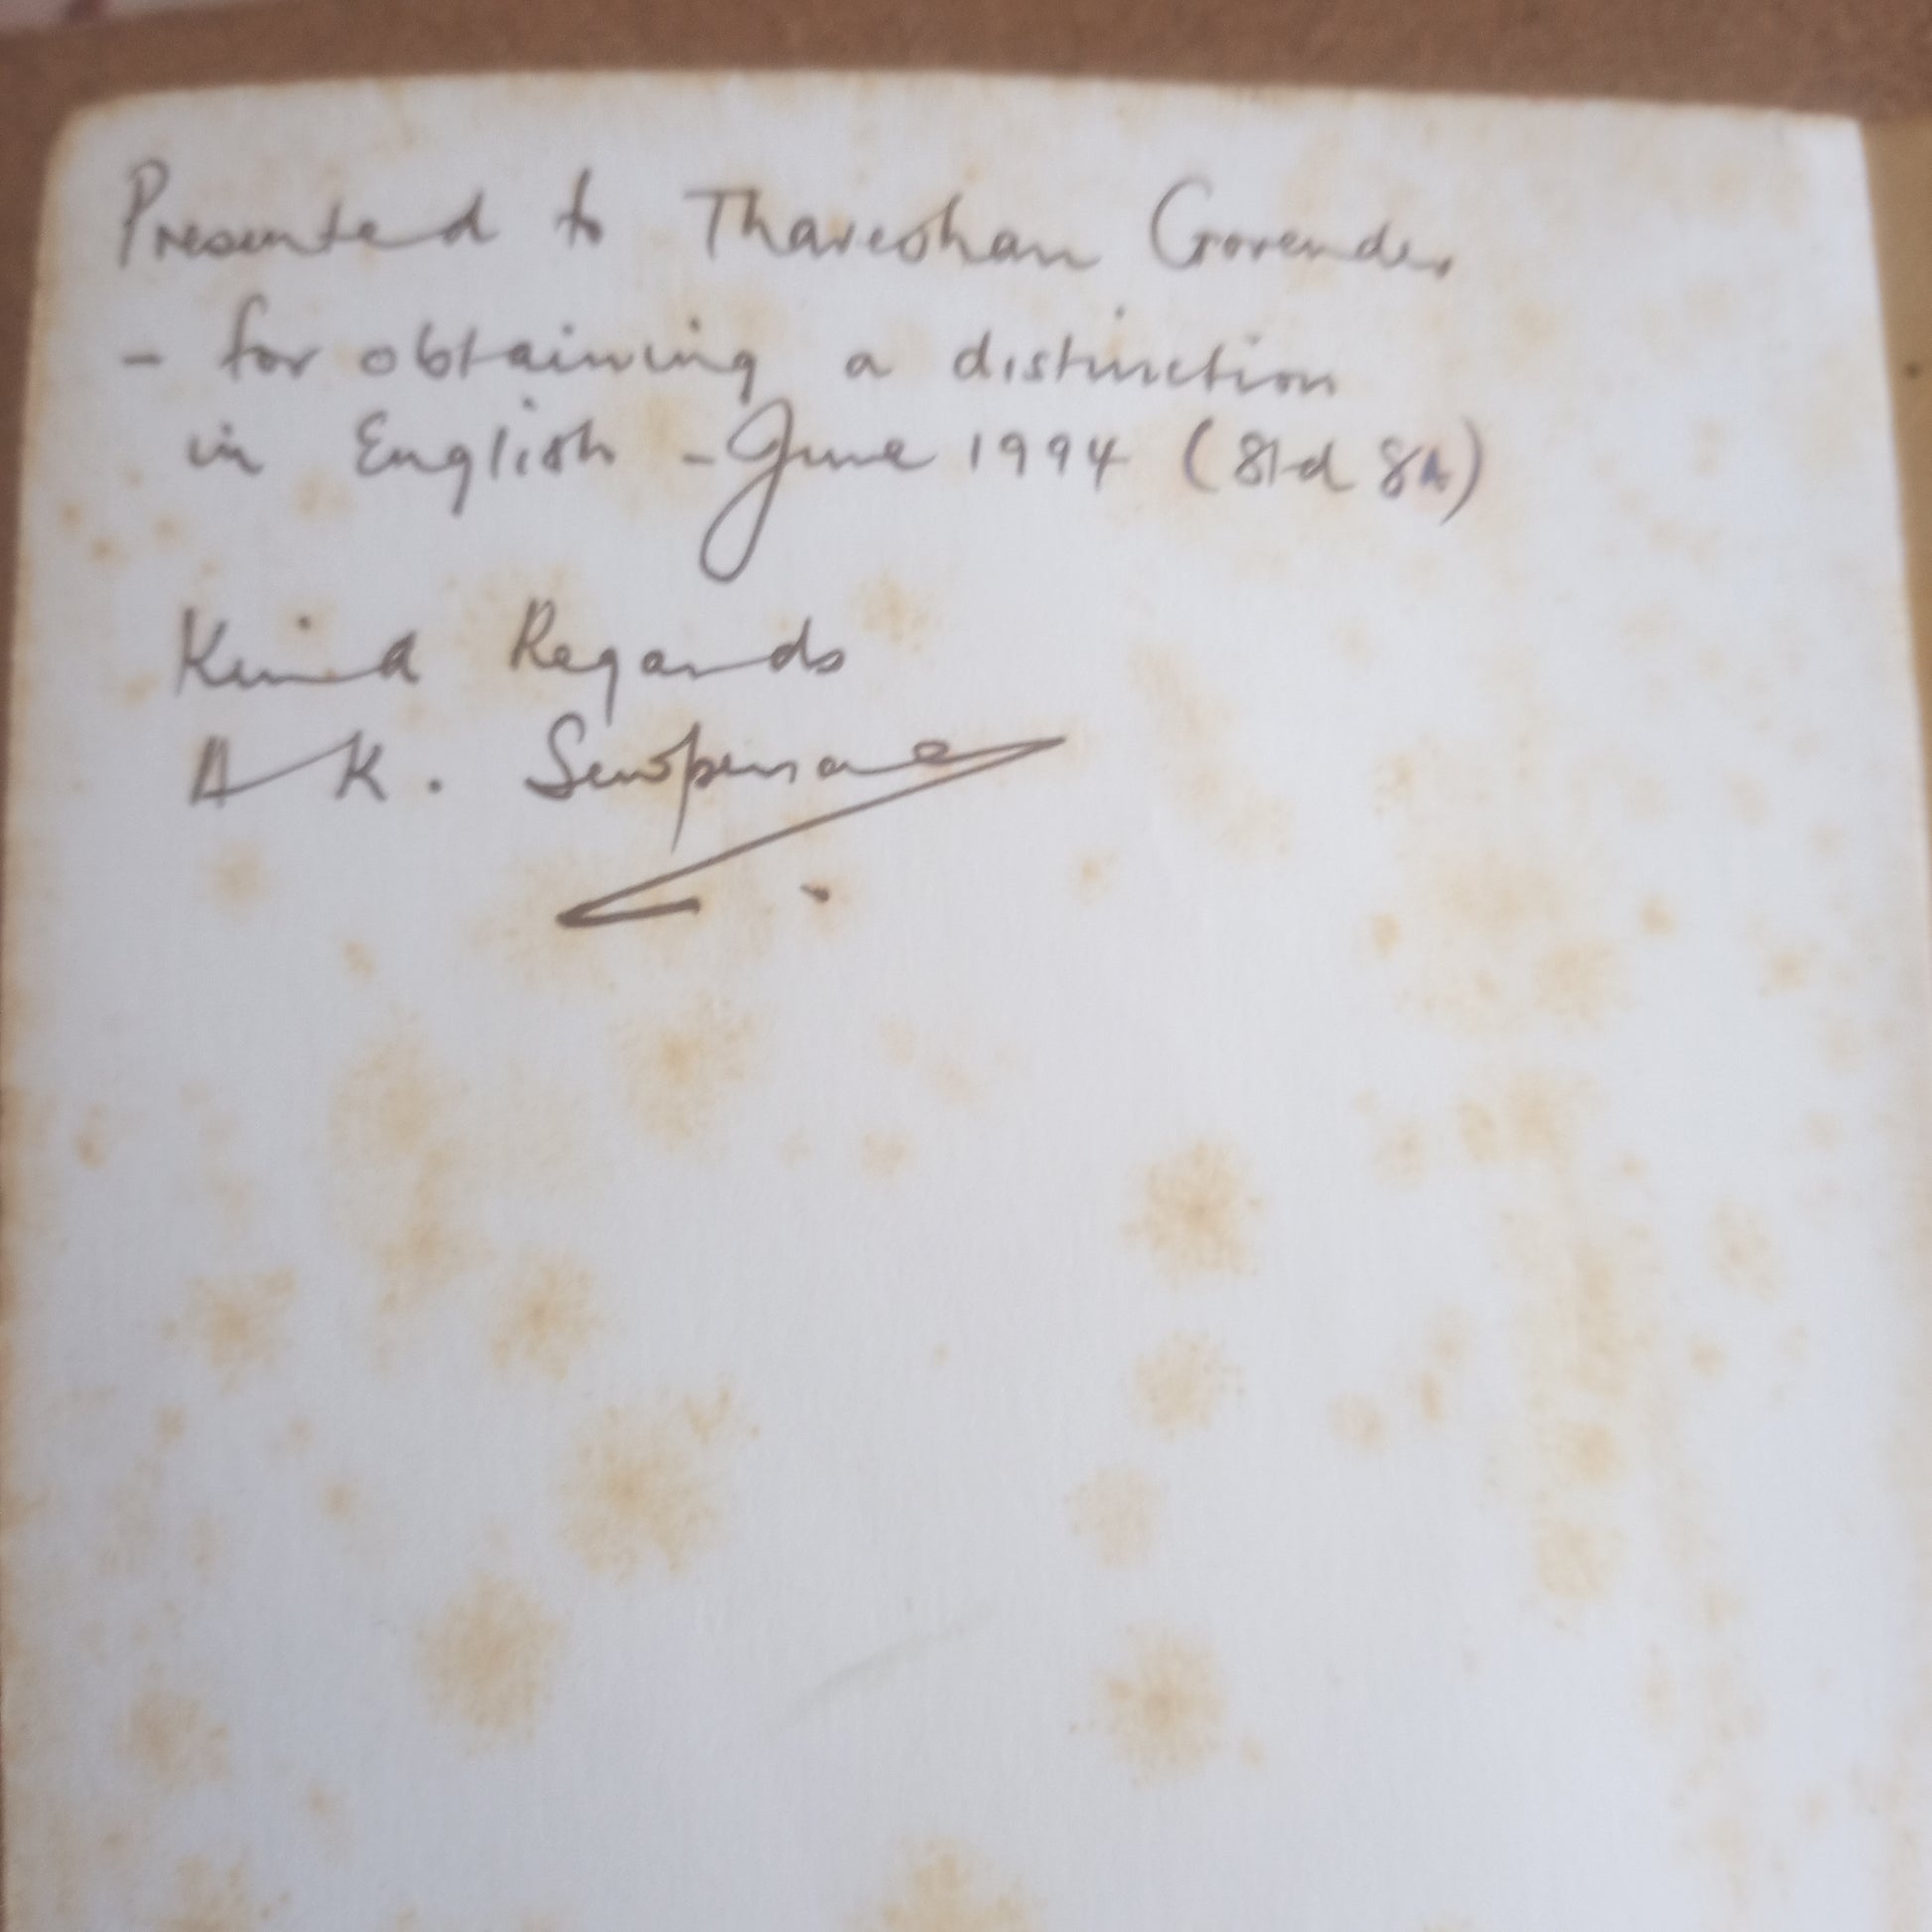 Presented to Thaveshan Govender
- for obtaining a distinction
in English - June 1994 (Std 8A)
Kind Regards
A K.